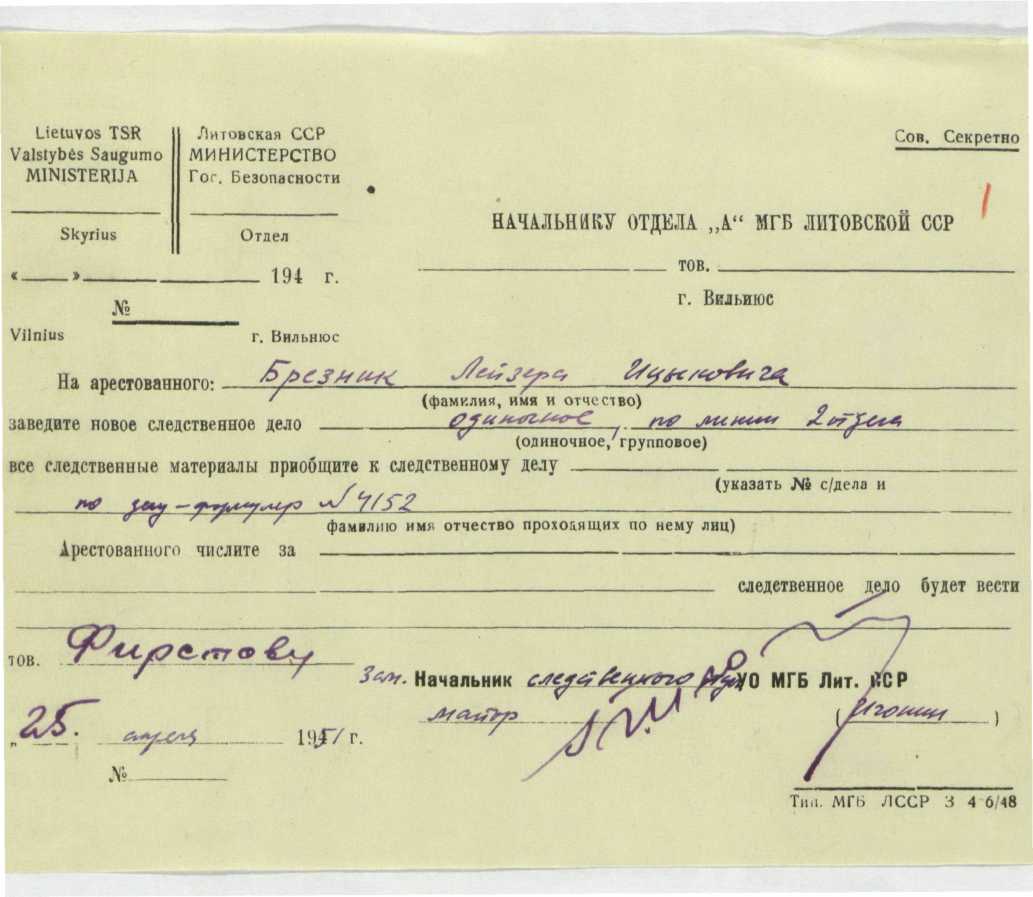 Lietuvos TSR
Valstybės Saugumo
MINISTERIJA
Skyrius
Литовская ССР
МИНИСТЕРСТВО
Гос. Безопасности
Отдел
« » 194 г.
№
Vilnius г. Вильнюс
Сов. Секретно
1
НАЧАЛЬНИКУ ОТДЕЛА „А“ МГБ ЛИТОВСКОЙ ССР
тов.
г. Вильнюс
На арестованного: Брезник Лейзера Ицыковича
(фамилия, имя и отчество)
заведите новое следственное дело одиночное, по линии 2 отдела
(одиночное, групповое)
все следственные материалы приобщите к следственному делу
(указать № с/дела и
по делу-формуляр №4152
фамилию имя отчество проходящих по нему лиц)
Арестованного числите за
следственное дело будет вести
тов. Фирстову
Зам. Начальник следственного УО МГБ Лит. ССР
майор (Игонин)
„25. апреля 1951 г.
№
Тип. МГБ ЛССР З 4-6/48